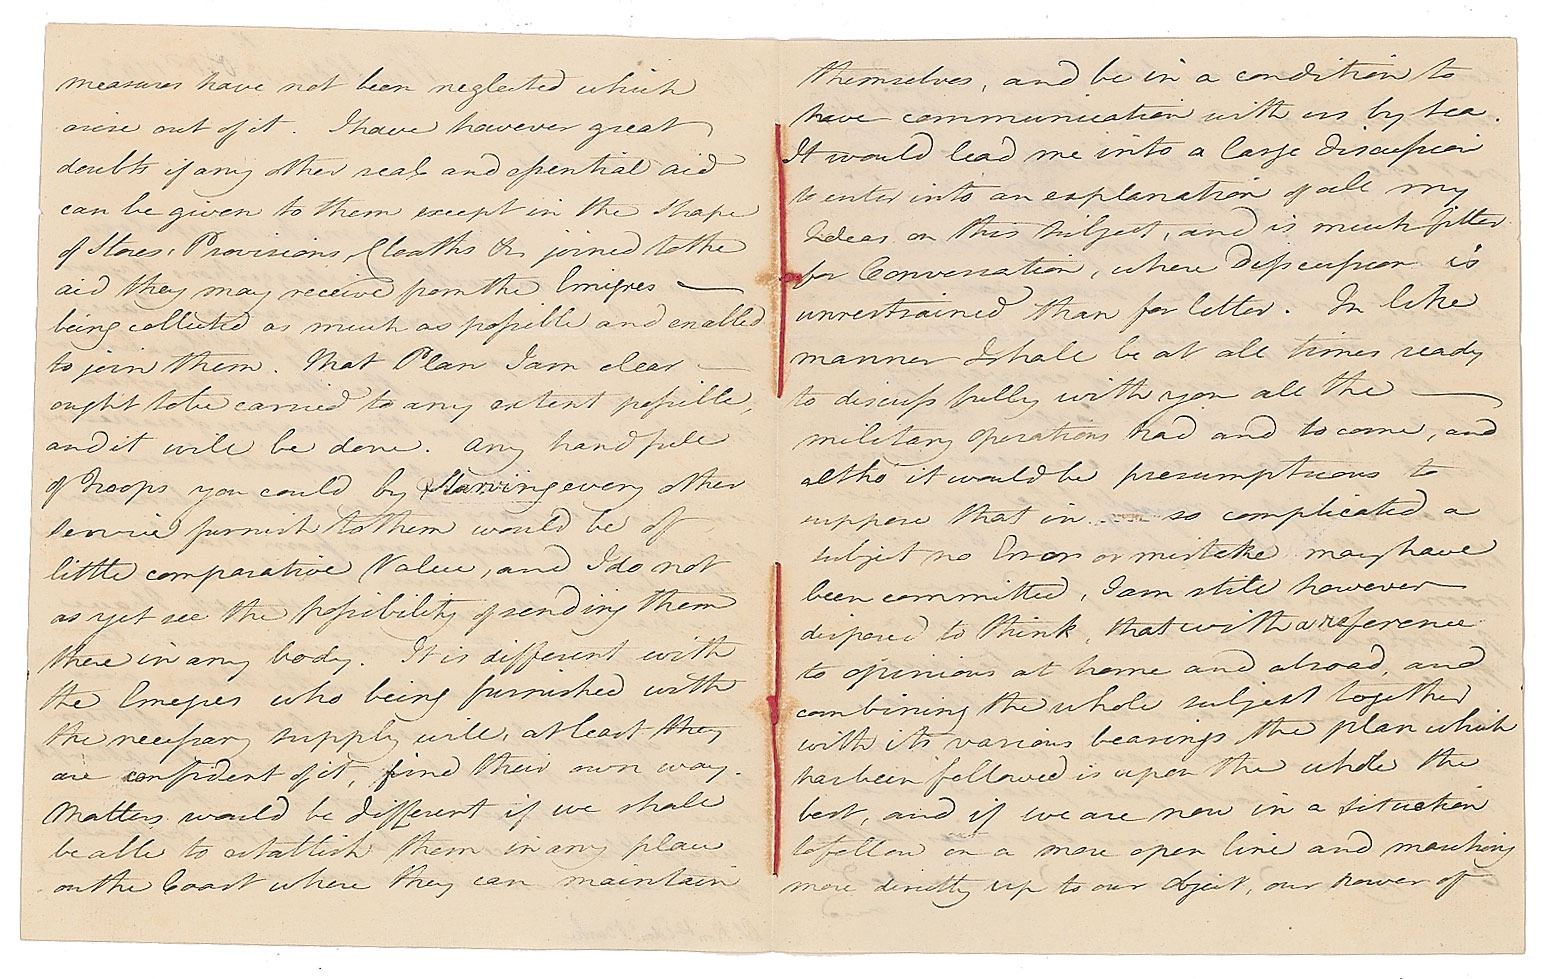 measures have not been neglected which
arise out of it. I have however great
doubts if any other real and essential aid
can be given to them except in the shape
of Stores, Provisions, Cloaths &c joined to the
aid they may receive from the Emigres —
being collected as much as possible and enabled
to join them. That Plan I am clear —
ought to be carried to any extent possible,
and it will be done. Any handfull
of Troops you could by Starving every other
service furnish to them would be of
little comparative Value, and I do not
as yet see the possibility of sending them
there in any body. It is different with
the Emegres who being furnished with
the necessary supply will, at least they
are confident of it, find their own way.
Matters would be different if we shall
be able to establish them in any place
on the Coast where they can maintain
themselves, and be in a condition to
have communication with us by sea.
It would lead me into a large discussion
to enter into an explanation of all my
Ideas on this subject, and is much fitter
for Conversation, where Disscussion is
unrestrained than for letter. In like
manner I shall be at all times ready
to discuss fully with you all the —
military operations had and to come, and
altho' it would be presumptuous to
suppose that in so complicated a
subject no Error or mistake may have
been committed, I am still however
disposed to think, that with a reference
to opinions at home and abroad, and
combining the whole subject together
with its various bearings, the plan which
has been followed is upon the whole the
best, and if we are now in a situation
to follow on a more open line and marching
more directly up to our object, our power of